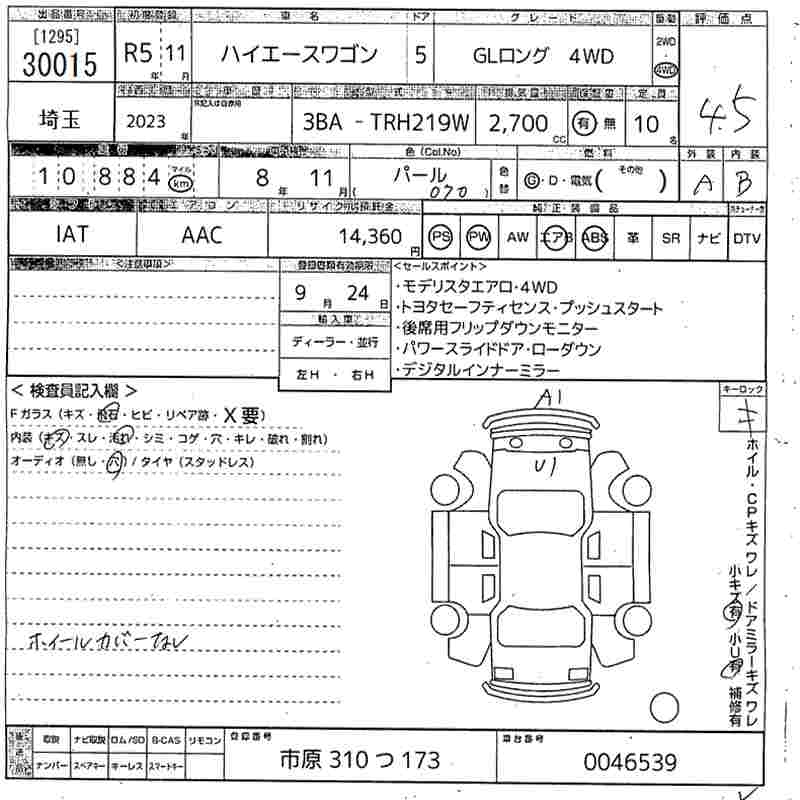 出品番号 初度登録 車名 ドア グレード 駆動 評価点
[1295]
30015 R5年 11月 ハイエースワゴン 5 GLロング 4WD 2WD・4WD 4.5
埼玉 2023年 3BA - TRH219W 2,700cc 有 無 定員 10名
色(Col.No) 燃料 外装 内装
10884 マイル km 8年 11月 パール 070 色替 G・D・電気( その他 ) A B
エアコン リサイクル預託金 純正装備品
IAT AAC 14,360円 PS PW AW エアB ABS 革 SR ナビ DTV
<注意事項> 登録書類有効期限 <セールスポイント>
9月 24日 ・モデリスタエアロ・4WD
・トヨタセーフティセンス・プッシュスタート
輸入車 ・後席用フリップダウンモニター
ディーラー・並行 ・パワースライドドア・ローダウン
左H ・ 右H ・デジタルインナーミラー
< 検査員記入欄 > キーロック
A1 キ
Fガラス (キズ・飛石・ヒビ・リペア跡・X要)
内装 (キズ・スレ・汚れ・シミ・コゲ・穴・キレ・破れ・割れ)
オーディオ (無し・穴) / タイヤ (スタッドレス)
U1
ホイール・CPキズ ワレ / ドアミラーキズ ワレ
小キズ 有 / 小U 有 補修有
ホイールカバーなし
後送品 取説 ナビ取説 ロム/SD B-CAS リモコン 登録番号 車台番号
ナンバー スペアキー キーレス スマートキー 市原 310 つ 173 0046539